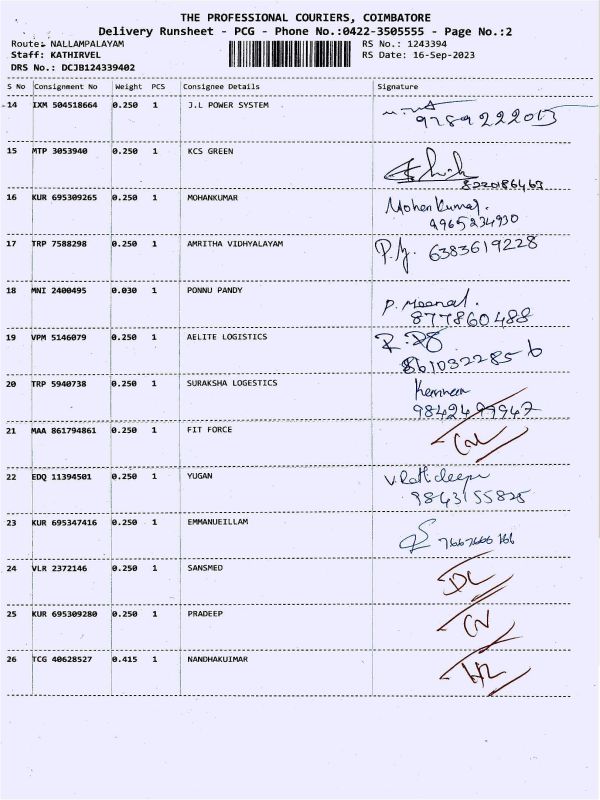 THE PROFESSIONAL COURIERS, COIMBATORE
Delivery Runsheet - PCG - Phone No.:0422-3505555 - Page No.:2
Route: NALLAMPALAYAM RS No.: 1243394
Staff: KATHIRVEL RS Date: 16-Sep-2023
DRS No.: DCJB124339402
S No Consignment No Weight PCS Consignee Details Signature
14 IXM 504518664 0.250 1 J.L POWER SYSTEM
9789222013
15 MTP 3053940 0.250 1 KCS GREEN
8220186463
16 KUR 695309265 0.250 1 MOHANKUMAR Mohan Kumar.
9965234930
17 TRP 7588298 0.250 1 AMRITHA VIDHYALAYAM 6383619228
18 MNI 2400495 0.030 1 PONNU PANDY P. Meenal.
877860488
19 VPM 5146079 0.250 1 AELITE LOGISTICS
8610322856
20 TRP 5940738 0.250 1 SURAKSHA LOGESTICS
9842499947
21 MAA 861794861 0.250 1 FIT FORCE
22 EDQ 11394501 0.250 1 YUGAN
9843155825
23 KUR 695347416 0.250 1 EMMANUEILLAM
24 VLR 2372146 0.250 1 SANSMED DL
25 KUR 695309280 0.250 1 PRADEEP
26 TCG 40628527 0.415 1 NANDHAKUIMAR